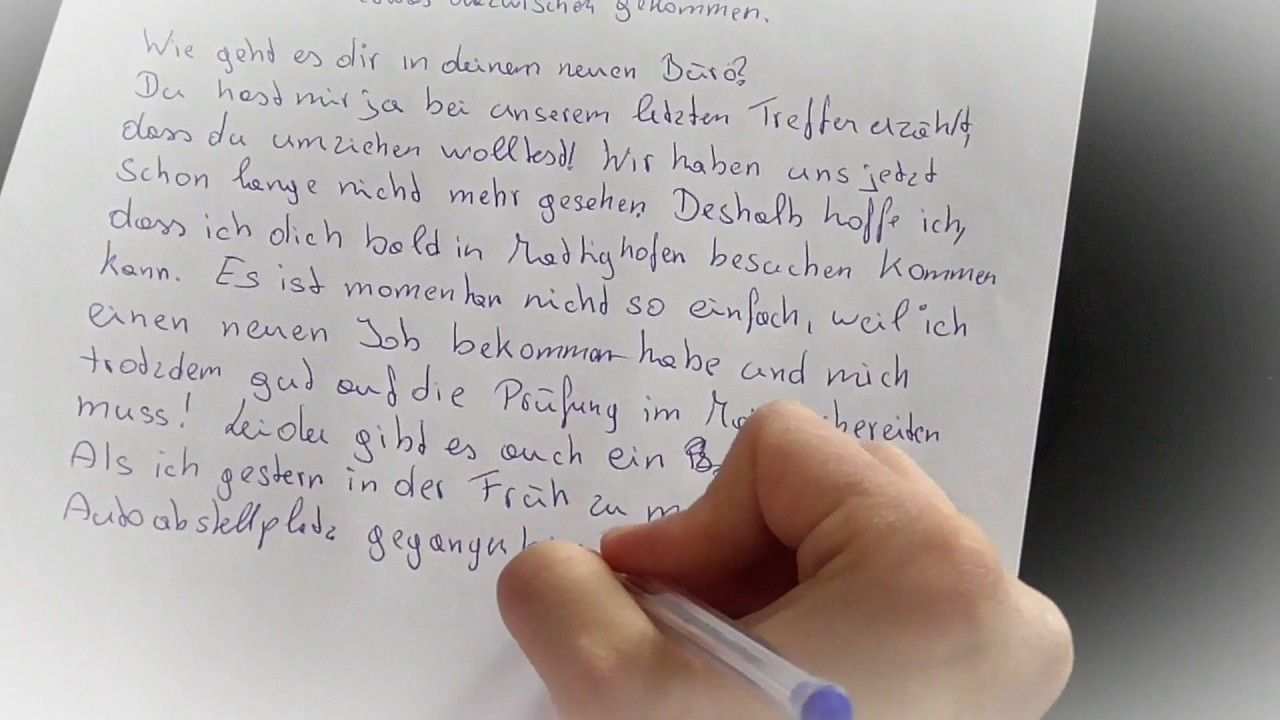 etwas dazwischen gekommen.
Wie geht es dir in deinem neuen Büro?
Du hast mir ja bei unserem letzten Treffen erzählt,
dass du umziehen wolltest! Wir haben uns jetzt
schon lange nicht mehr gesehen. Deshalb hoffe ich,
dass ich dich bald in Mattighofen besuchen kommen
kann. Es ist momentan nicht so einfach, weil ich
einen neuen Job bekommen habe und mich
trotzdem gut auf die Prüfung im
muss! Leider gibt es auch ein
Als ich gestern in der Früh zu
Autoabstellplatz gegangen